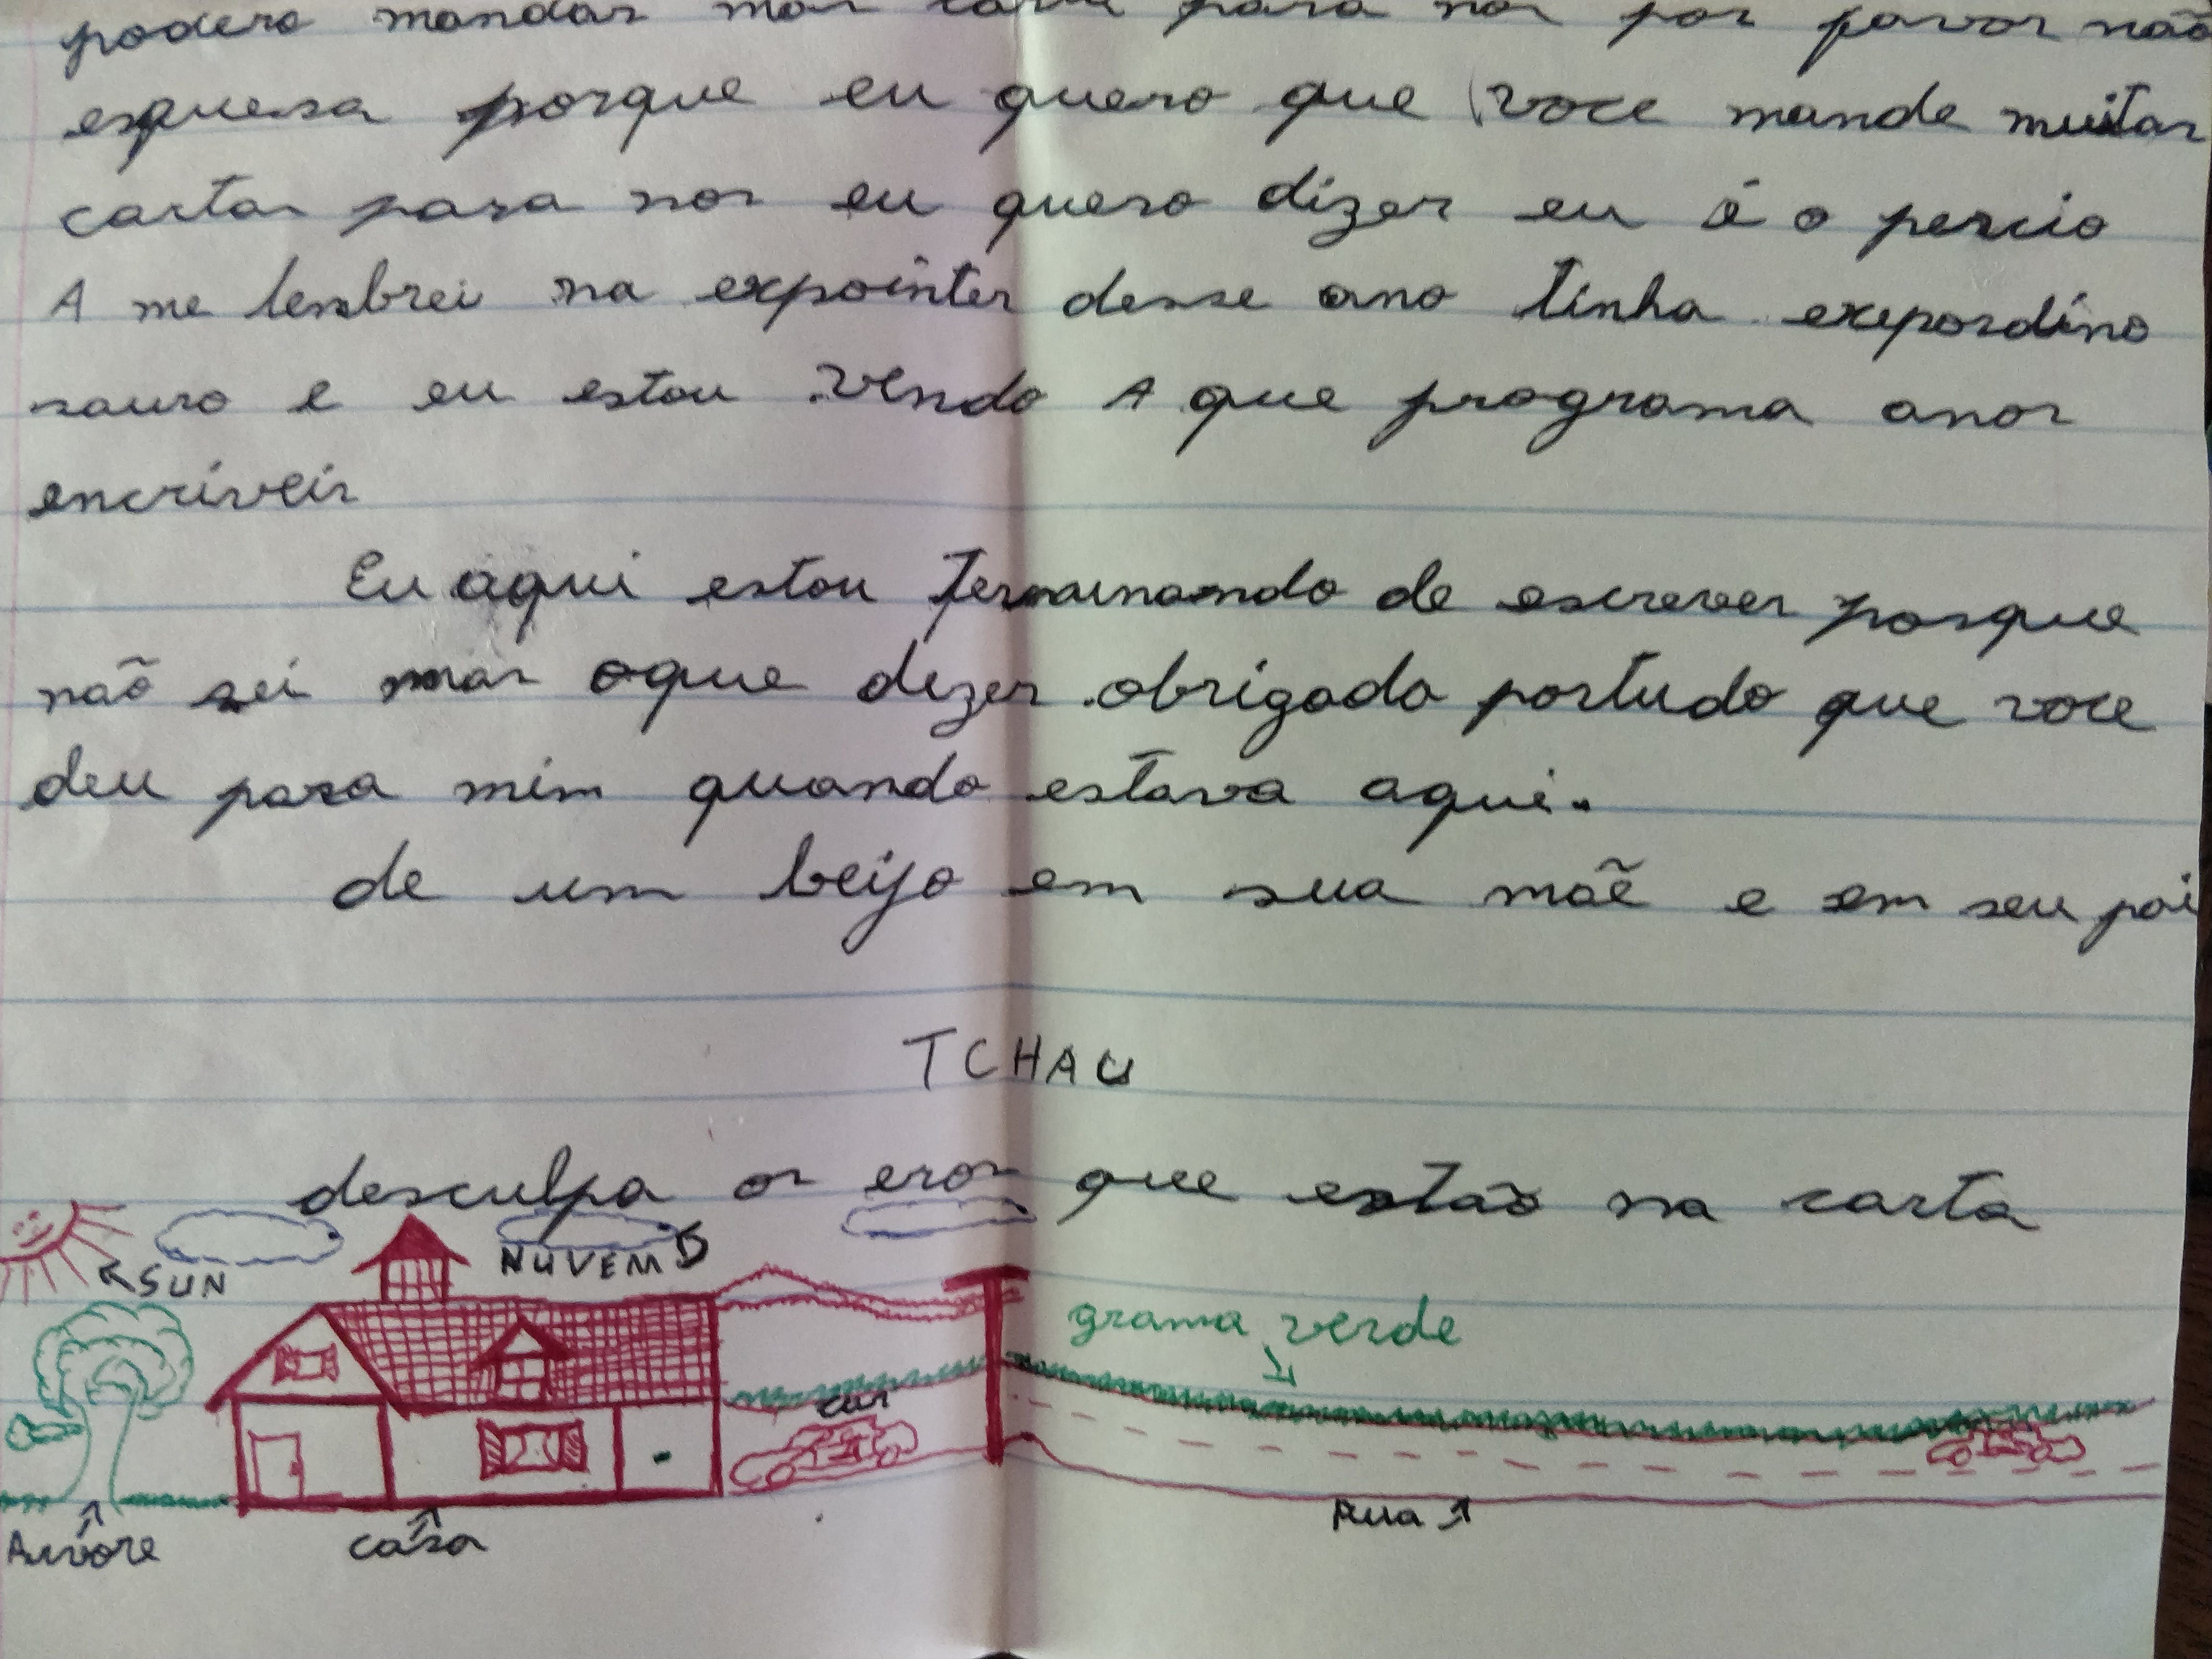 podero mandar mas para nos por favor não
esquesa porque eu quero que voce mande muitas
cartas para nos eu quero dizer eu é o percio
A me lembrei na expointer desse ano tinha exepordino
sauro e eu estou vendo A que programa anos
encriveis
Eu aqui estou terminando de escrever porque
não sei mas oque dizer obrigado portudo que voce
deu para mim quando estava aqui.
de um beijo em sua mãe e em seu pai
TCHAU
desculpa os eros que estão na carta
SUN
NUVEMS
grama verde
car
Rua
Arvore
casa